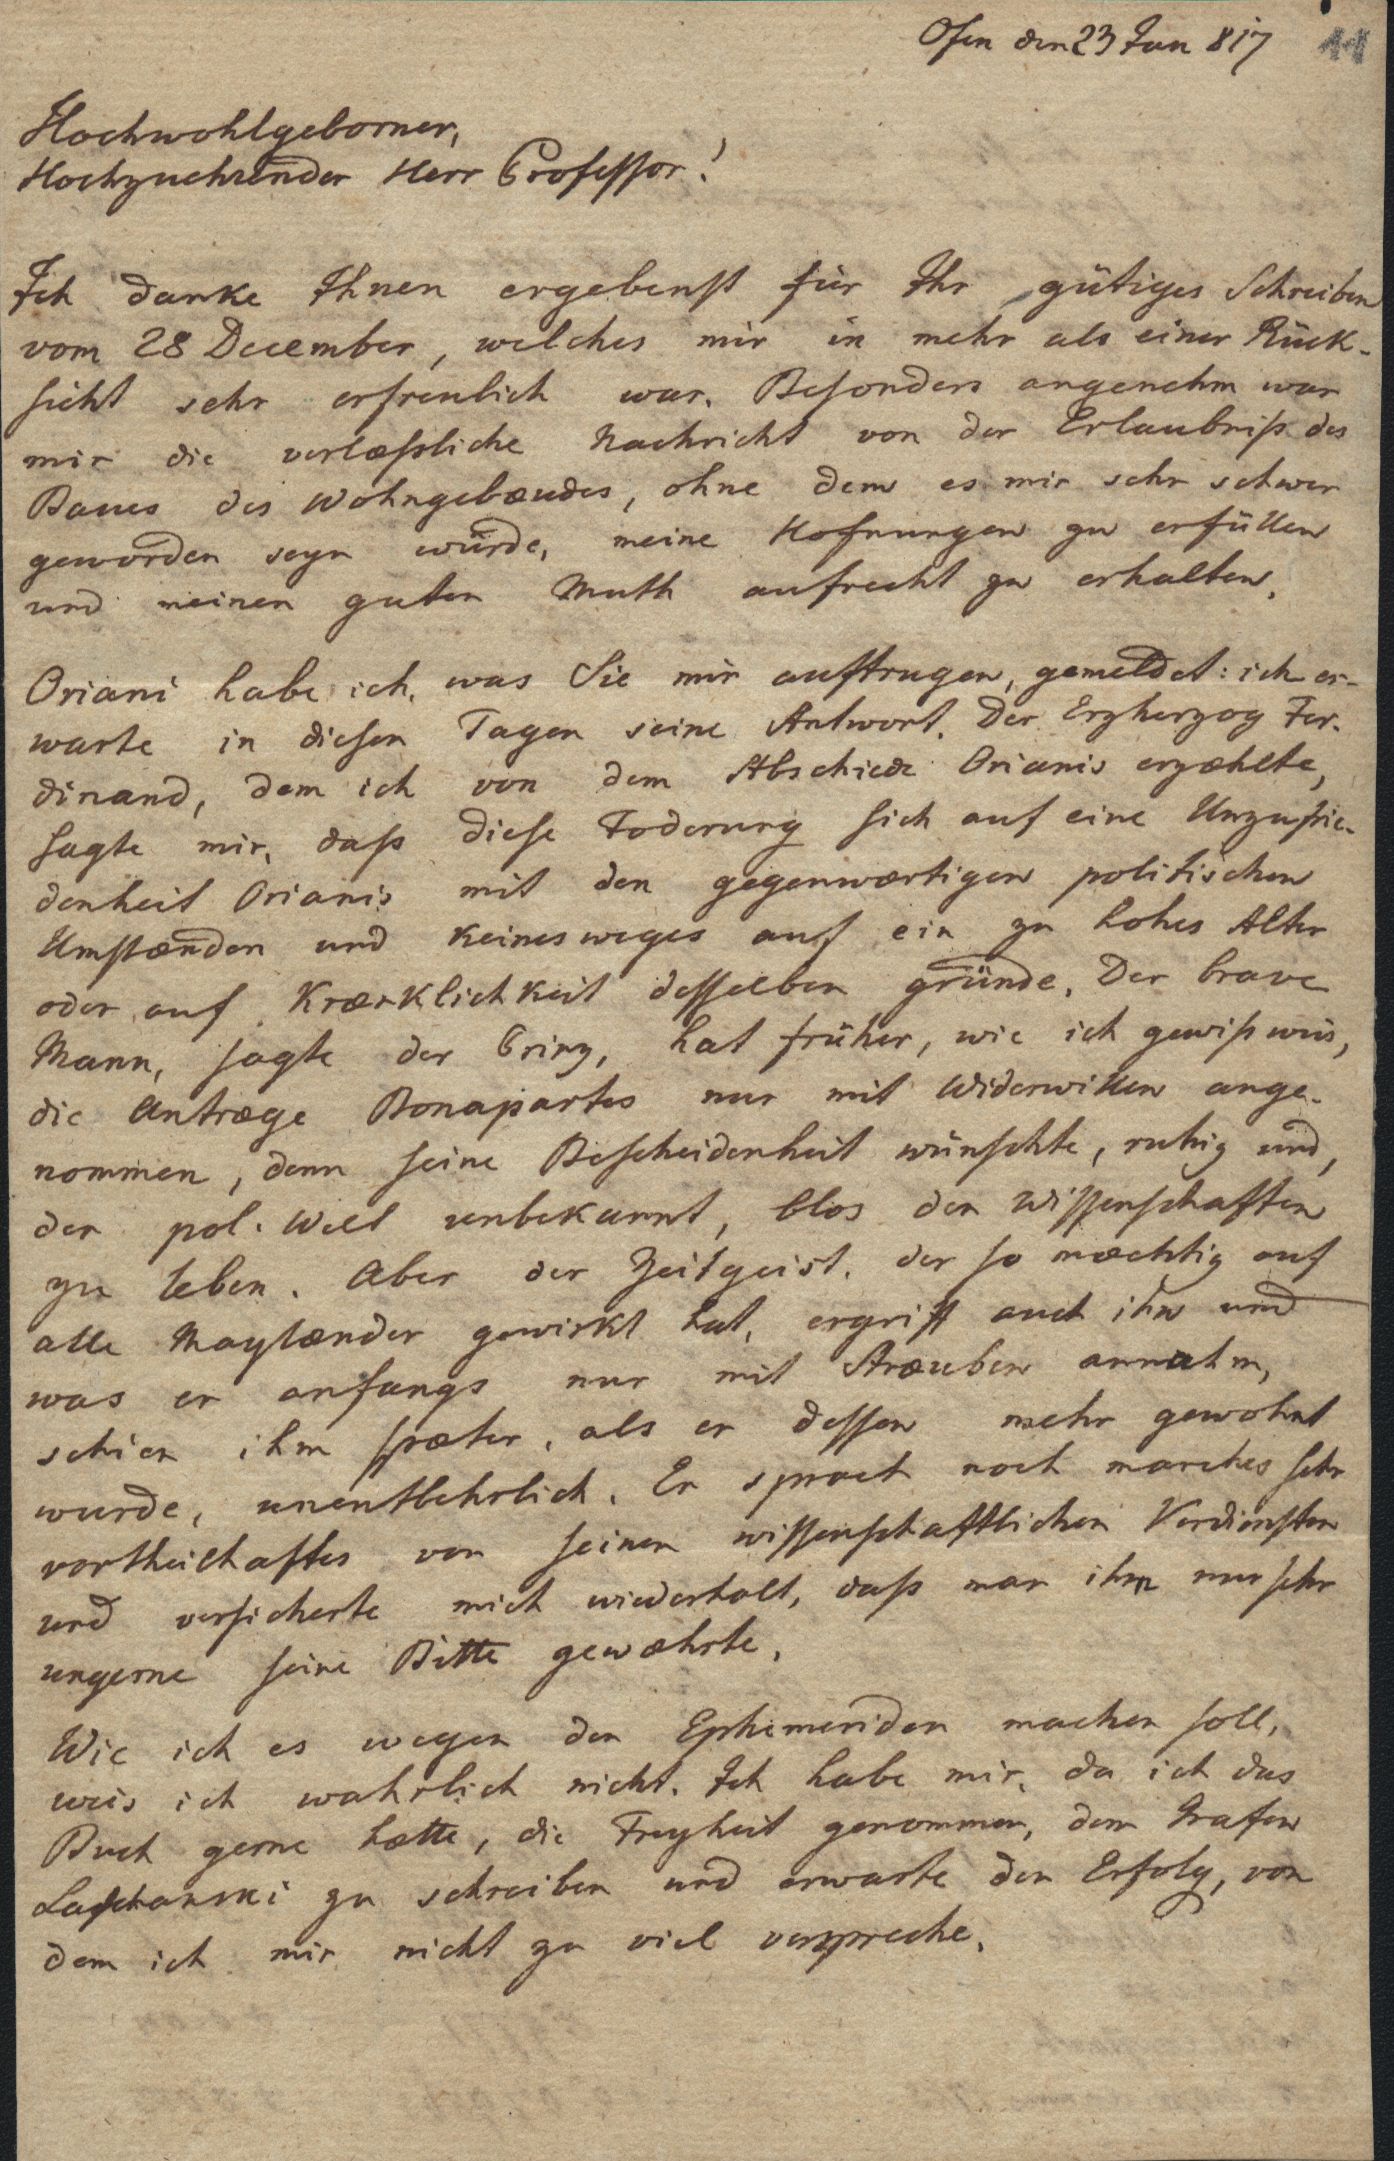 Ofen den 23 Jan 817 11
Hochwohlgeborner,
Hochzuehrender Herr Professor!
Ich danke Ihnen ergebenst für Ihr gütiges Schreiben
vom 28 December, welches mir in mehr als einer Rück-
sicht sehr erfreulich war. Besonders angenehm war
mir die verlæssliche Nachricht von der Erlaubniss des
Baues des Wohngebæudes, ohne dem es mir sehr schwer
geworden seyn würde, meine Hofnungen zu erfüllen
und meinen guten Muth aufrecht zu erhalten.
Oriani habe ich, was Sie mir auftrugen, gemeldet: ich er-
warte in diesen Tagen seine Antwort. Der Erzherzog Fer-
dinand, dem ich von dem Abschiede Orianis erzæhlte,
sagte mir, dass diese Foderung sich auf eine Unzufrie-
denheit Orianis mit den gegenwærtigen politischen
Umstænden und keinesweges auf ein zu hohes Alter
oder auf Krænklichkeit desselben gründe. Der brave
Mann, sagte der Prinz, hat früher, wie ich gewiss weis,
die Antræge Bonapartes nur mit Widerwillen ange-
nommen, denn seine Bescheidenheit wünschte, ruhig und,
der pol. Welt unbekannt, blos den Wissenschaften
zu leben. Aber der Zeitgeist, der so mæchtig auf
alle Maylænder gewirkt hat, ergriff auch ihn und
was er anfangs nur mit Stræuben annahm,
schien ihm spæter, als er dessen mehr gewohnt
wurde, unentbehrlich. Er sprach noch manches sehr
vortheilhaftes von seinen wissenschaftlichen Verdiensten
und versicherte mich wiederholt, dass man ihm nur sehr
ungerne seine Bitte gewæhrte.
Wie ich es wegen den Ephemeriden machen soll,
weis ich wahrlich nicht. Ich habe mir, da ich das
Buch gerne hætte, die Freyheit genommen, dem Grafen
Laschanski zu schreiben und erwarte den Erfolg, von
dem ich mir nicht zu viel verspreche.